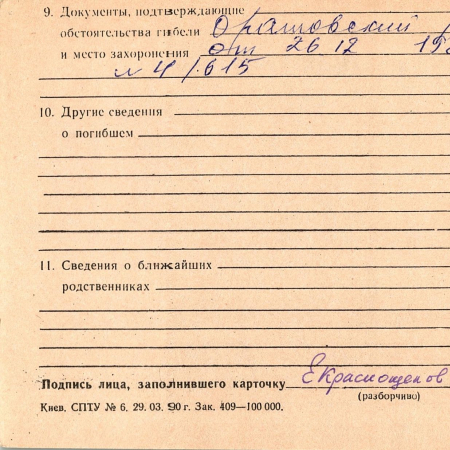 9. Документы, подтверждающие
обстоятельства гибели Оратовский
и место захоронения от 26 12 19
№ 4/615
10. Другие сведения
о погибшем
11. Сведения о ближайших
родственниках
Подпись лица, заполнившего карточку Е Краснощеков
(разборчиво)
Киев. СПТУ № 6. 29. 03. 90 г. Зак. 409—100 000.